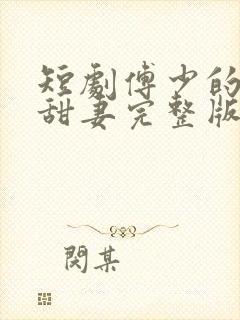 短劇傅少的
甜妻完整版
閔某